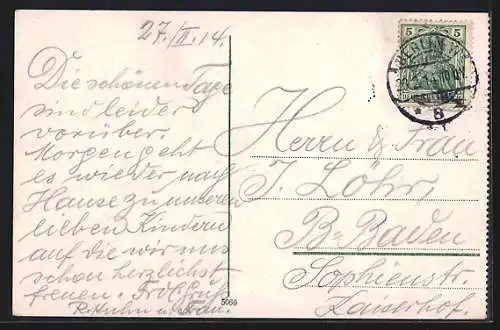 27./II.14.
Die schönen Tage
sind leider
vorüber.
Morgen geht
es wieder nach
Hause zu unseren
lieben Kindern
auf die wir uns
schon herzlichst
freuen.
u. Frau.
Herrn & Frau
J. Löhr,
B-Baden
Sophienstr.
Kaiserhof.
5060
5 5
BERLIN
8